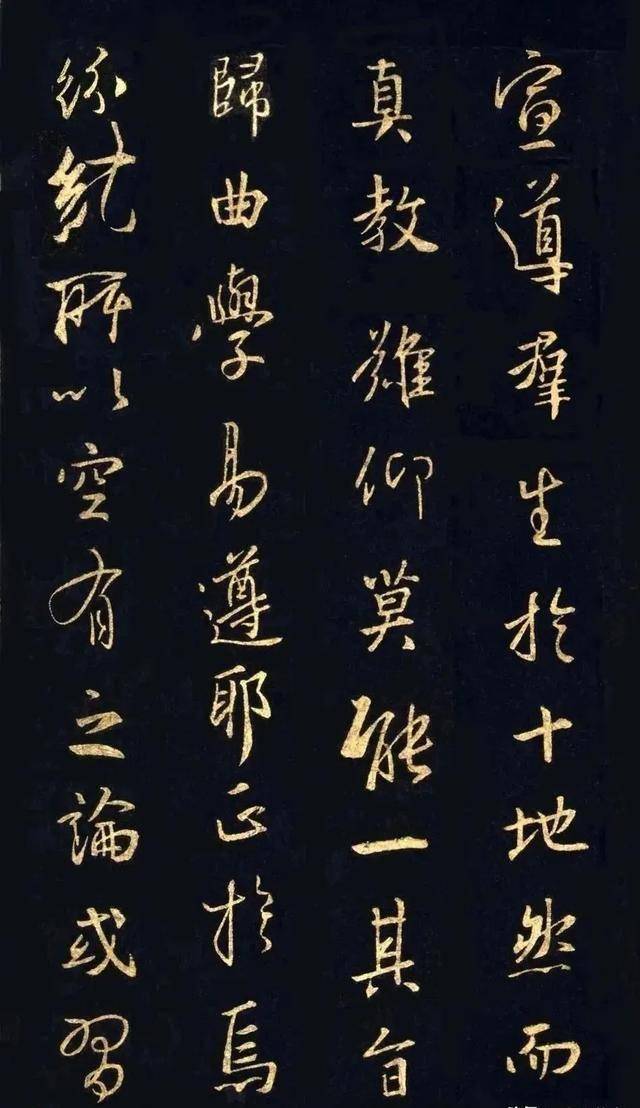 宣導羣生於十地然而
真教難仰莫能一其旨
歸曲學易遵耶正於焉
紛紀所以空有之論或習